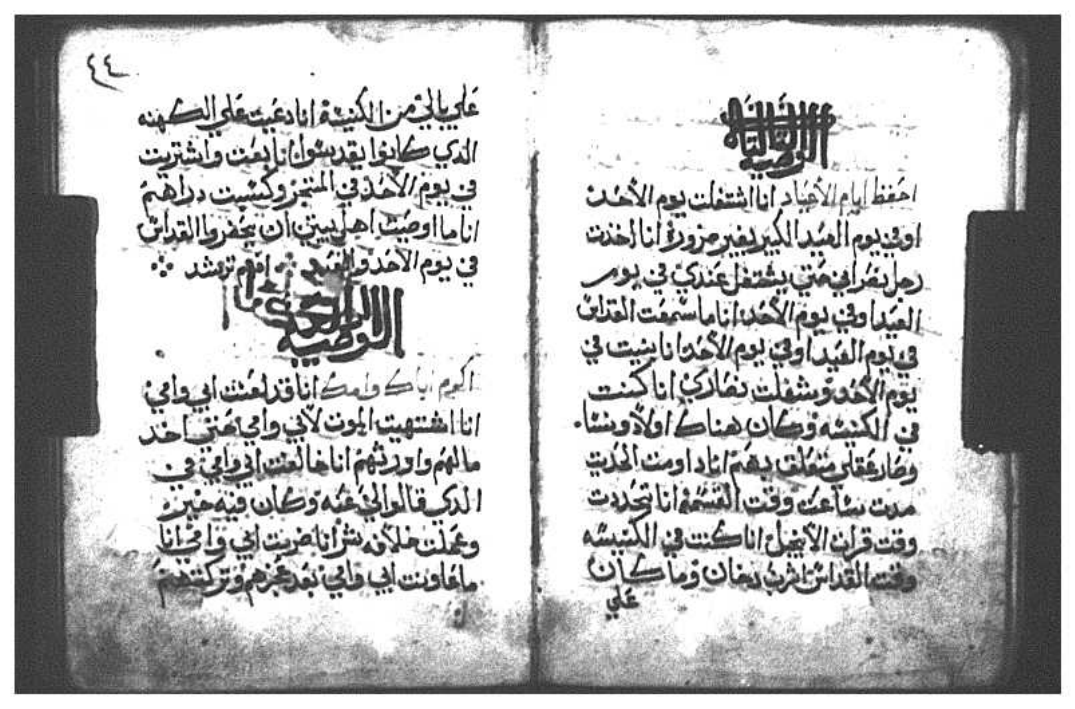 الوصية الثالثة
احفظ ايام الأعياد انا اشتغلت يوم الأحد
اوفي يوم العيد الكبير بغير ضرورة انا اخذت
رجل نصراني حتي يشتغل عندي في يوم
العيد اوفي يوم الأحد انا ما سمعت القداس
في يوم العيد اوفي يوم الأحد انا بنيت في
يوم الأحد وشغلت نصاري انا كنت
في الكنيسه وكان هناك اولاد ونسا
وصار عقلي متعلق بهم انا داومت الحديت
مدت ساعت وقت القسمة انا تحددت
وقت قرات الأنجيل انا كنت في الكنيسه
وقت القداس اشرب دخان وما كان
علي
٤٤
علي بالي من الكنيسة انا دعيت علي الكهنه
الذي كانوا يقدسون انا بعت واشتريت
في يوم الأحد في المتجر وكسبت دراهم
انا ما اوصيت اهل بيتي ان يحضروا القداس
في يوم الأحد والعيد ترشد
الوصية الرابعة
اكرم اباك وامك انا قد لعنت ابي وامي
انا اشتهيت الموت لأبي وامي حتي اخد
مالهم واورثهم انا خالفت ابي وامي في
الدي قالوا لي عنه وكان فيه خير
وعملت خلافه شر انا ضربت ابي وامي انا
ما عاونت ابي وامي بعد عجزهم وتركتهم